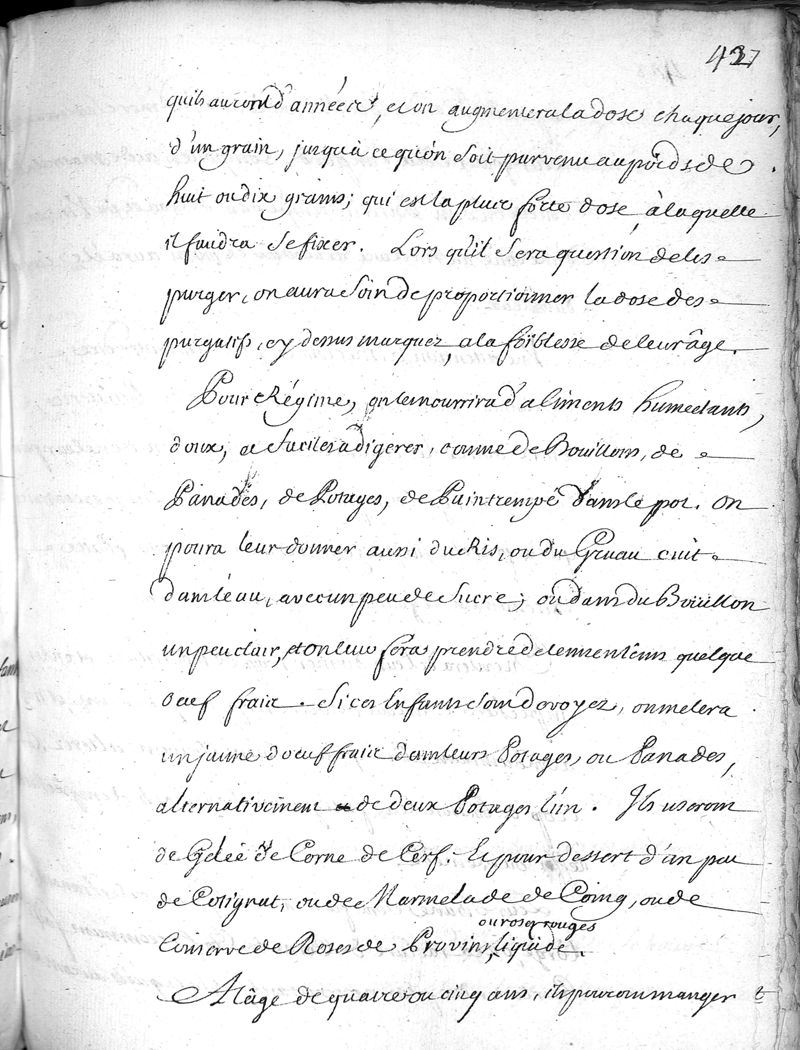 427
qu'ils auront d'années, et on augmentera la dose chaque jour,
d'un grain, jusqu'à ce qu'on soit parvenu au poids de
huit ou dix grains; qui est la plus forte dose, à laquelle
il faudra se fixer. Lors qu'il sera question de les
purger, on aura soin de proportionner la dose des
purgatifs, cy dessus marquez, a la foiblesse de leur âge.
Pour Régime, on les nourrira d'aliments humectants,
doux, et faciles a digerer, comme de Bouillons, de
Panades, de Potages, de Pain trempé dans le pot. On
poura leur donner aussi du Ris, ou du Gruau cuit
dans l'eau, avec un peu de Sucre; ou dans du Bouillon
un peu clair, et on leur fera prendre de tems en tems quelque
oeuf frais. Si ces Enfants sont dévoyez, on melera
un jaune d'oeuf frais dans leurs Potages, ou Panades,
alternativement de deux Potages l'un. Ils useront
de Gelée de Corne de Cerf. Et pour dessert d'un peu
de Cotignat, ou de Marmelade de Coing, ou de
ou roses rouges
Conserve de Roses de Provins, liquide.
A l'âge de quatre ou cinq ans, ils pourront manger